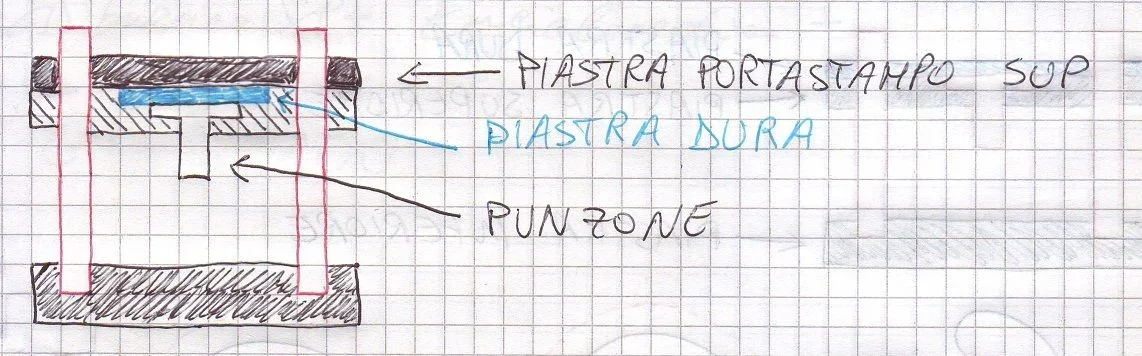 PIASTRA PORTASTAMPO SUP
PIASTRA DURA
PUNZONE